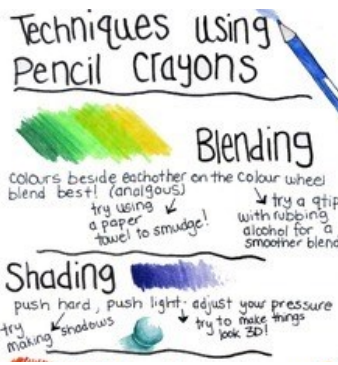 Techniques using
Pencil Crayons
Blending
colours beside eachother on the colour wheel
blend best! (analgous)
try using
a paper
towel to smudge!
try a qtip
with rubbing
alcohol for a
smoother blend
Shading
push hard, push light - adjust your pressure
try
making shadows
try to make things
look 3D!